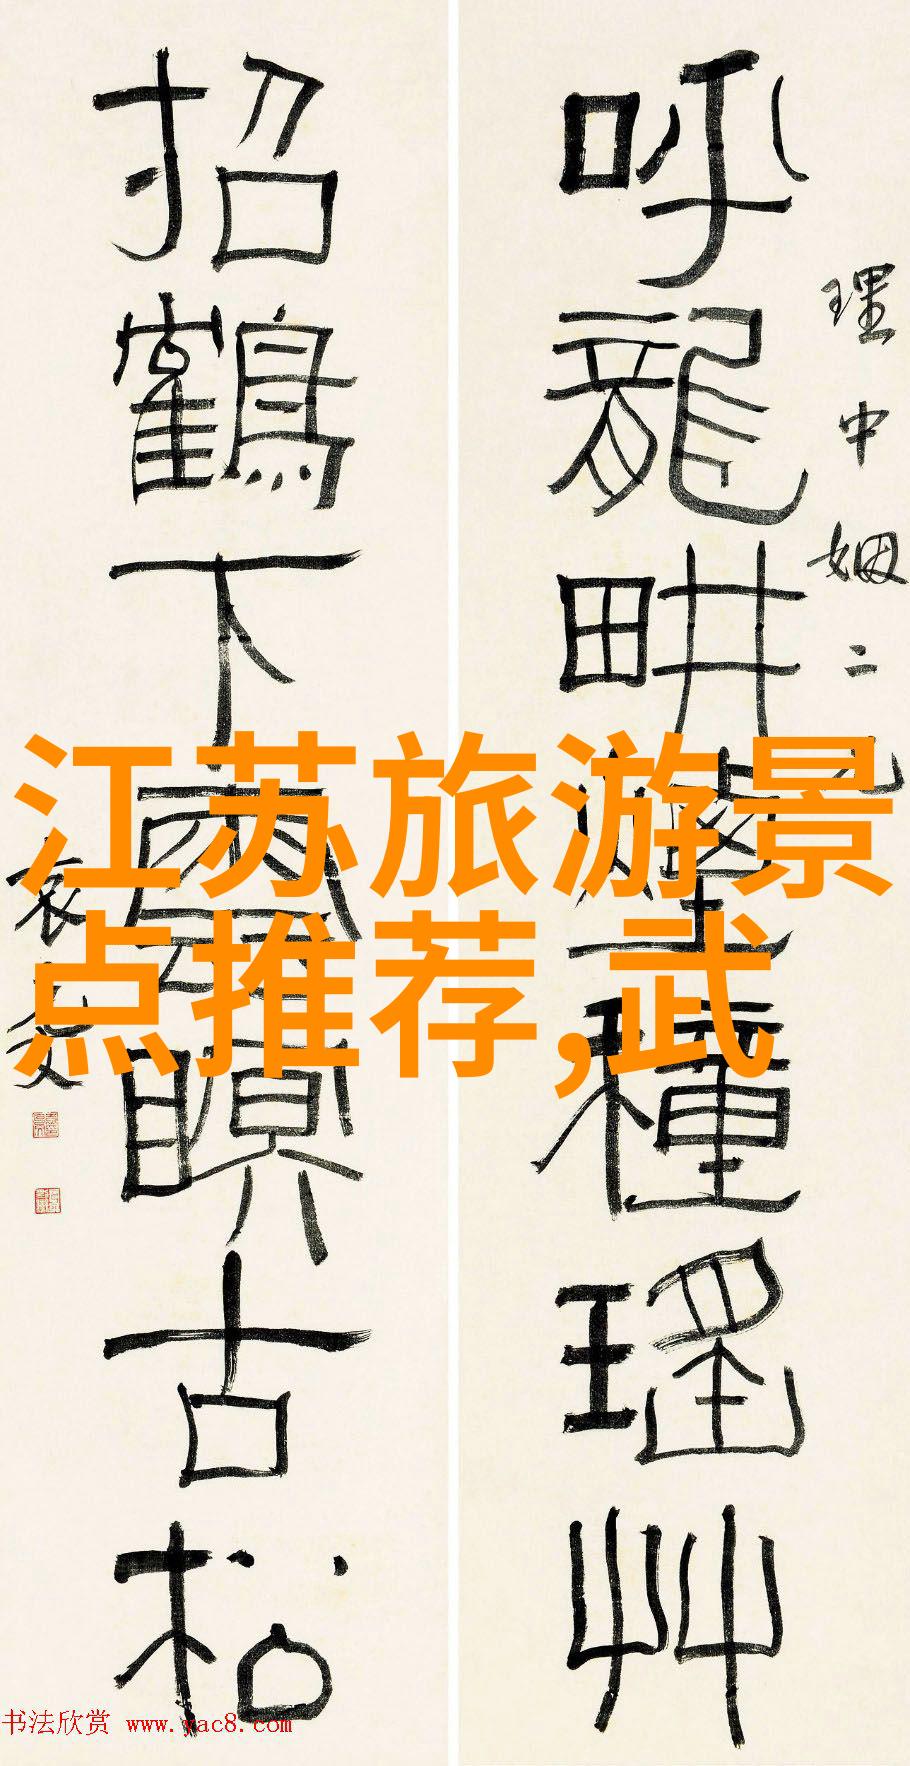 呼龍畊煙種瑤艸
招鶴下雲瞑古松
理中姻二兄
袁文
江苏旅游景
点推荐,武
书法欣赏 www.yac8.com